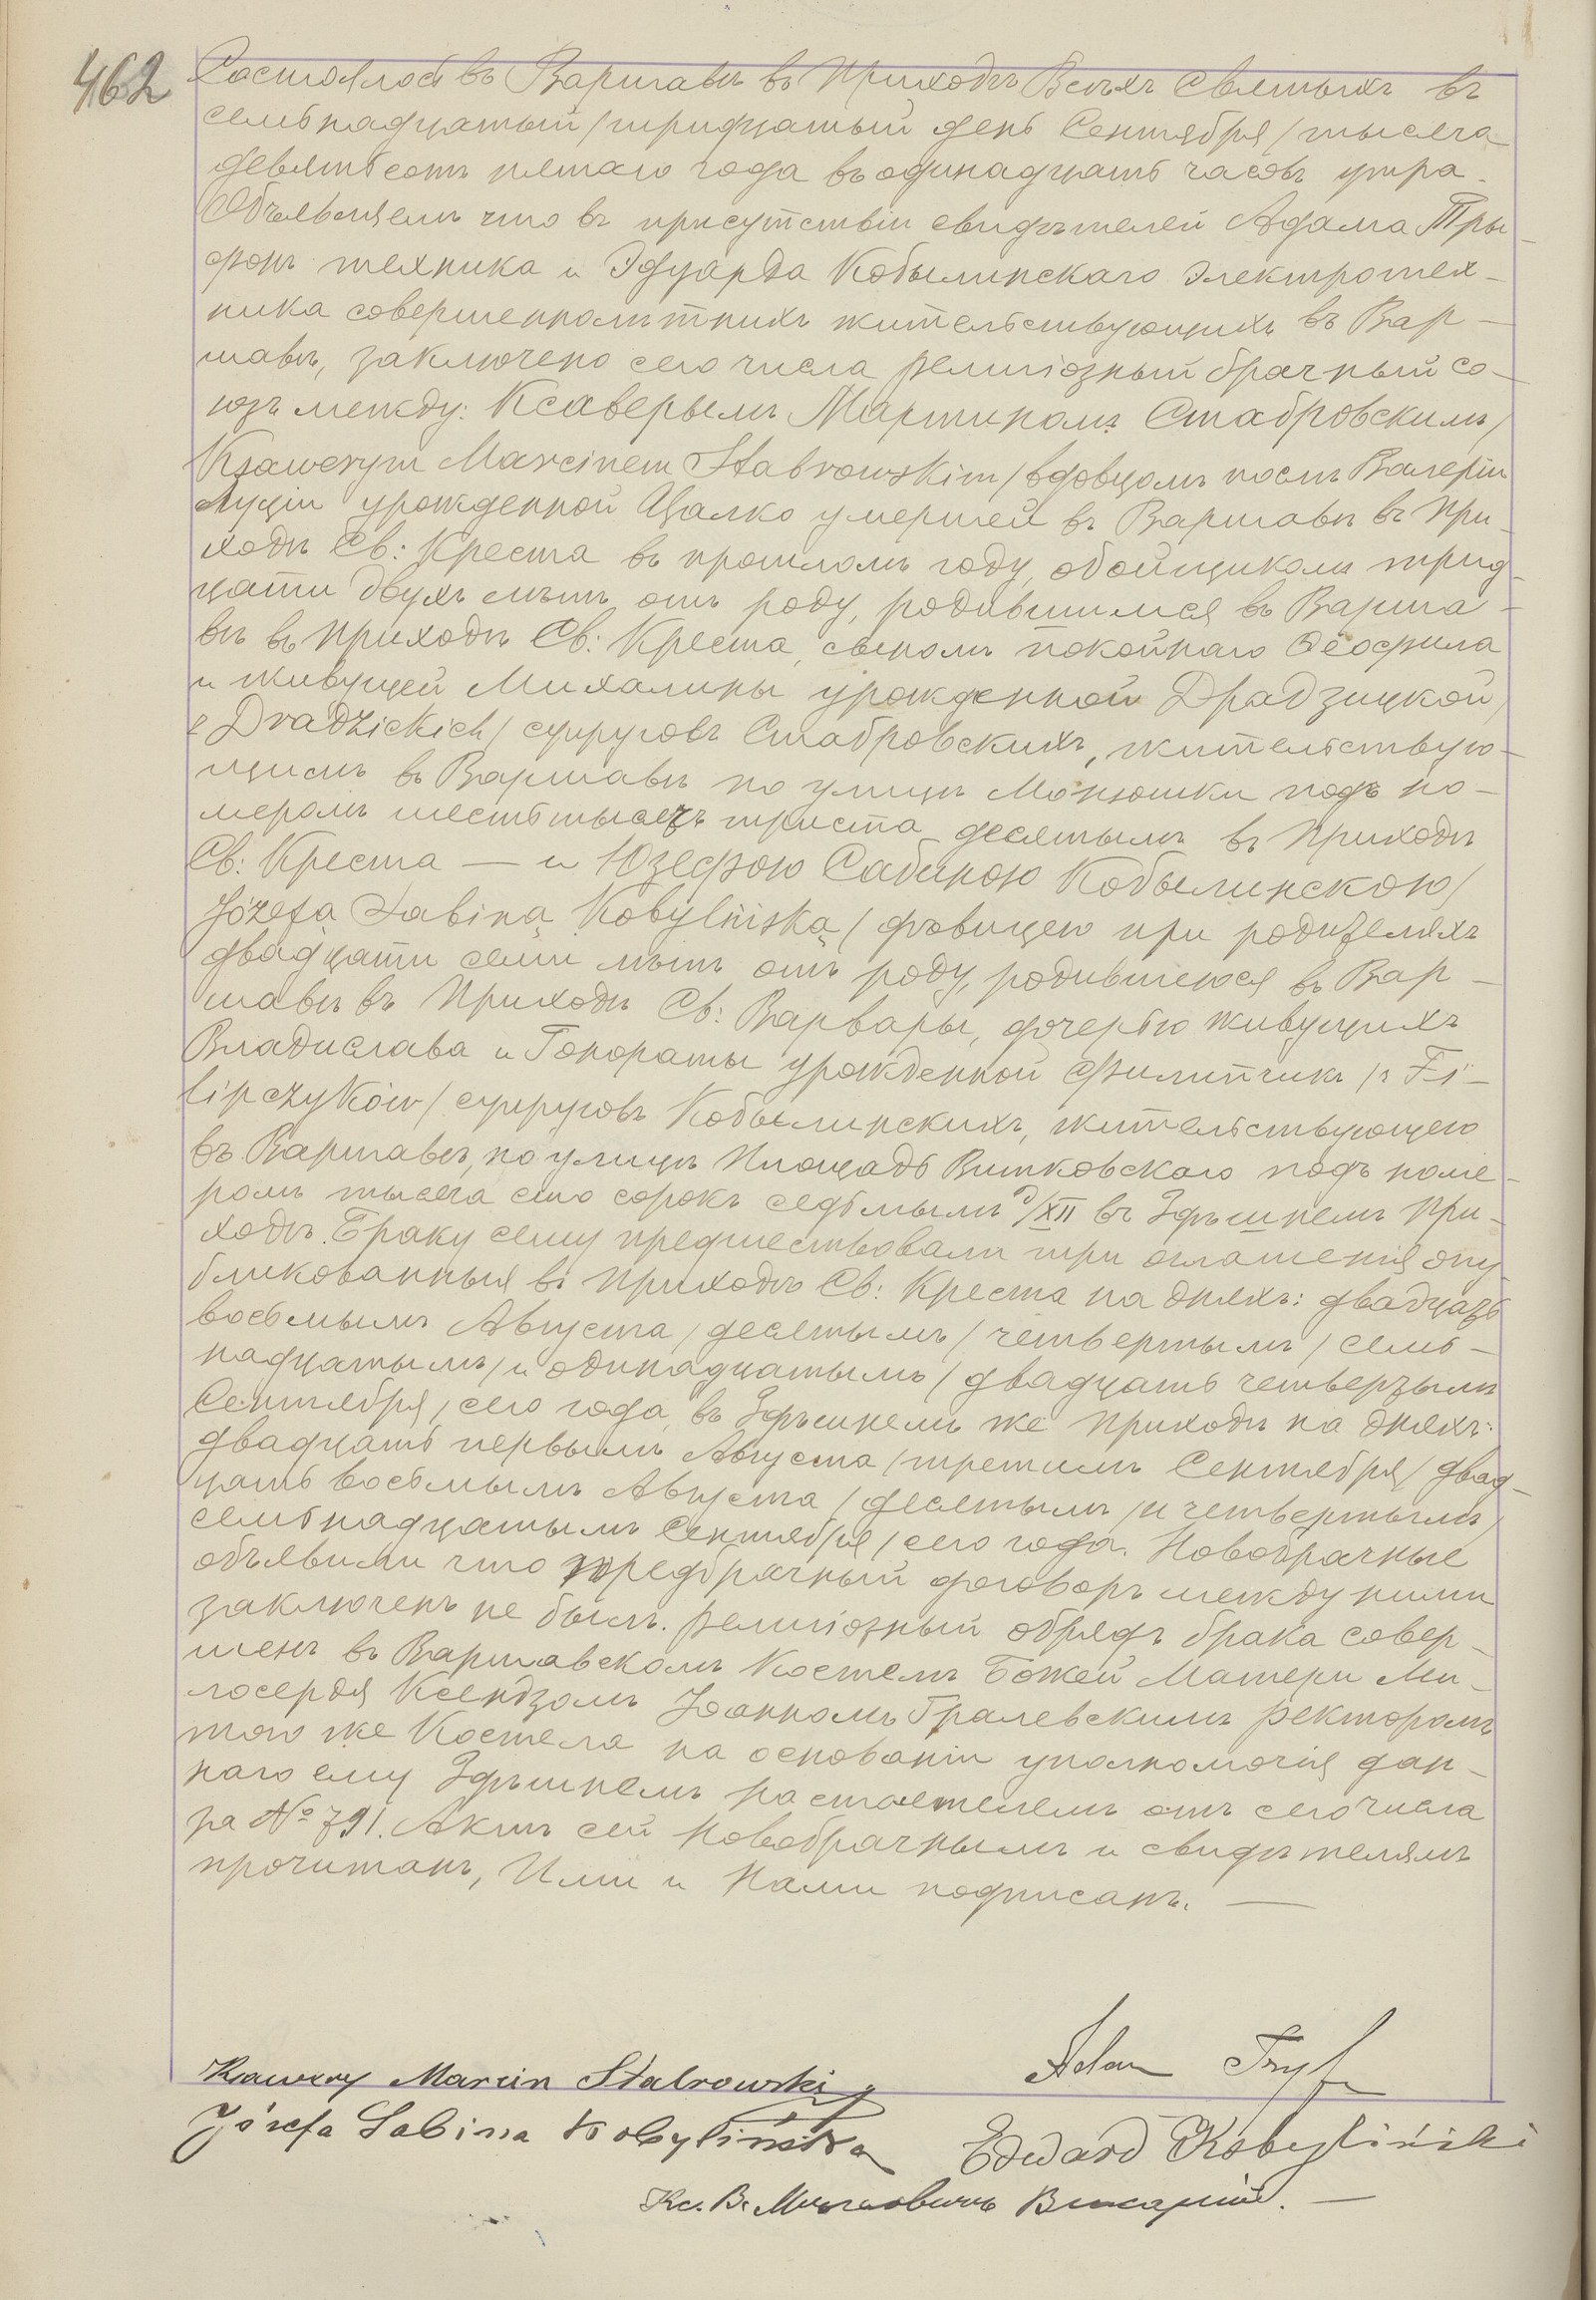 462
Состоялось въ Варшавѣ въ Приходѣ Всѣхъ Святыхъ въ
семьнадцатый /тридцатый день Сентября/ тысяча
девятьсотъ пятаго года въ одинадцать часовъ утра.
Объявляемъ что въ присутствіи свидѣтелей Адама Тры-
фонъ техника и Эдуарда Кобылинскаго электротех-
ника совершеннолѣтнихъ жительствующихъ въ Вар-
шавѣ, заключено сего числа религіозный брачный со-
юзъ между: Ксаверымъ Мартиномъ Стабровскимъ /
Ksawerym Marcinem Stabrowskim / вдовцомъ послѣ Валеріи
Луціи урожденной Цалко умершей въ Варшавѣ въ При-
ходѣ Св: Креста въ прошломъ году, обойщикомъ трид-
цати двухъ лѣтъ отъ роду, родившимся въ Варша-
вѣ въ Приходѣ Св: Креста, сыномъ покойнаго Ѳеофила
и живущей Михалины урожденной Драдзицкой /
z Dradzickich / супруговъ Стабровскихъ, жительствую-
щимъ въ Варшавѣ по улицѣ Монюшки подъ но-
меромъ шестьтысячъ триста десятымъ въ Приходѣ
Св: Креста — и Юзефою Сабиною Кобылинскою /
Józefą Sabiną Kobylińską / дѣвицею при родителяхъ
двадцати семи лѣтъ отъ роду, родившеюся въ Вар-
шавѣ въ Приходѣ Св: Варвары, дочерью живущихъ
Владислава и Гонораты урожденной Филипчикъ / z Fi-
lipczyków / супруговъ Кобылинскихъ, жительствующею
въ Варшавѣ, по улицѣ Площадь Витковскаго подъ номе-
ромъ тысяча сто сорокъ седьмымъ д/XII въ Здѣшнемъ При-
ходѣ. Браку сему предшествовали три оглашенія опу-
бликованныя въ Приходѣ Св: Креста на дняхъ: двадцать
восьмымъ Августа / десятымъ / четвертымъ / семь-
надцатымъ / и одинадцатымъ / двадцать четвертымъ
Сентября / сего года, въ Здѣшнемъ же Приходѣ на дняхъ:
двадцать первымъ Августа / третимъ Сентября / двад-
цать восьмымъ Августа / десятымъ / и четвертымъ /
семьнадцатымъ Сентября / сего года. Новобрачные
объявили что предбрачный договоръ между ними
заключенъ не былъ. Религіозный обрядъ брака совер-
шенъ въ Варшавскомъ Костелѣ Божей Матери Ми-
лосердя Ксендзомъ Іоанномъ Гралевскимъ ректоромъ
того же Костела на основаніи уполномочія дан-
наго ему Здѣшнемъ настоятелемъ отъ сего числа
за № 791. Актъ сей Новобрачнымъ и свидѣтелямъ
прочитанъ, Ими и Нами подписанъ. —
Ksawery Marcin Stabrowski
Adam Tryf
Józefa Sabina Kobylińska
Edward Kobyliński
Кс. В. Викарій. —